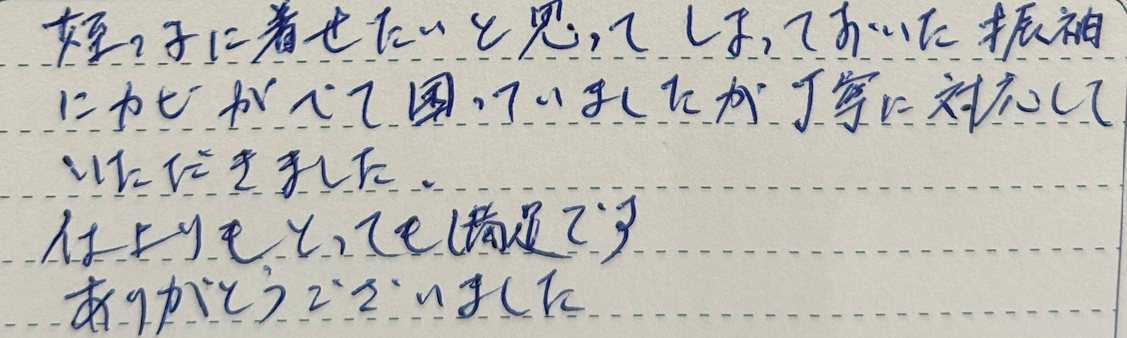 姪っ子に着せたいと思ってしまっておいた振袖
にカビがべて困っていましたが丁寧に対応して
いただきました。
仕上りもとっても満足です
ありがとうございました